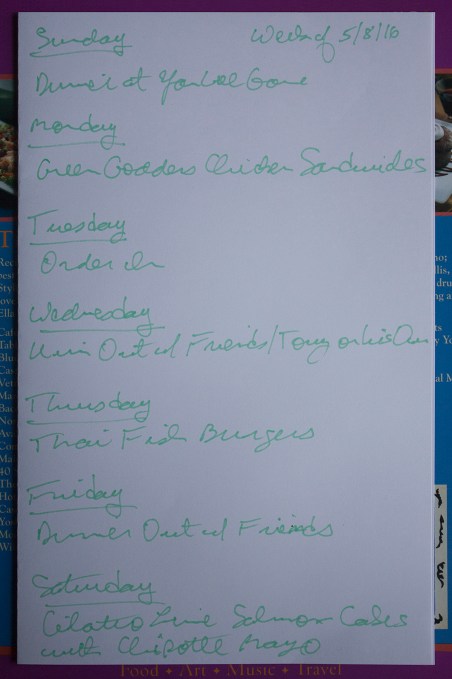 Sunday Week of 5/8/16
Dinner at Game
Monday
Green Goddess Chicken Sandwiches
Tuesday
Order In
Wednesday
Out w/ Friends/Tony on his Own
Thursday
Thai Fish Burgers
Friday
Dinner Out w/ Friends
Saturday
Cilantro Lime Salmon Cakes
with Chipotle Mayo
Food • Art • Music • Travel